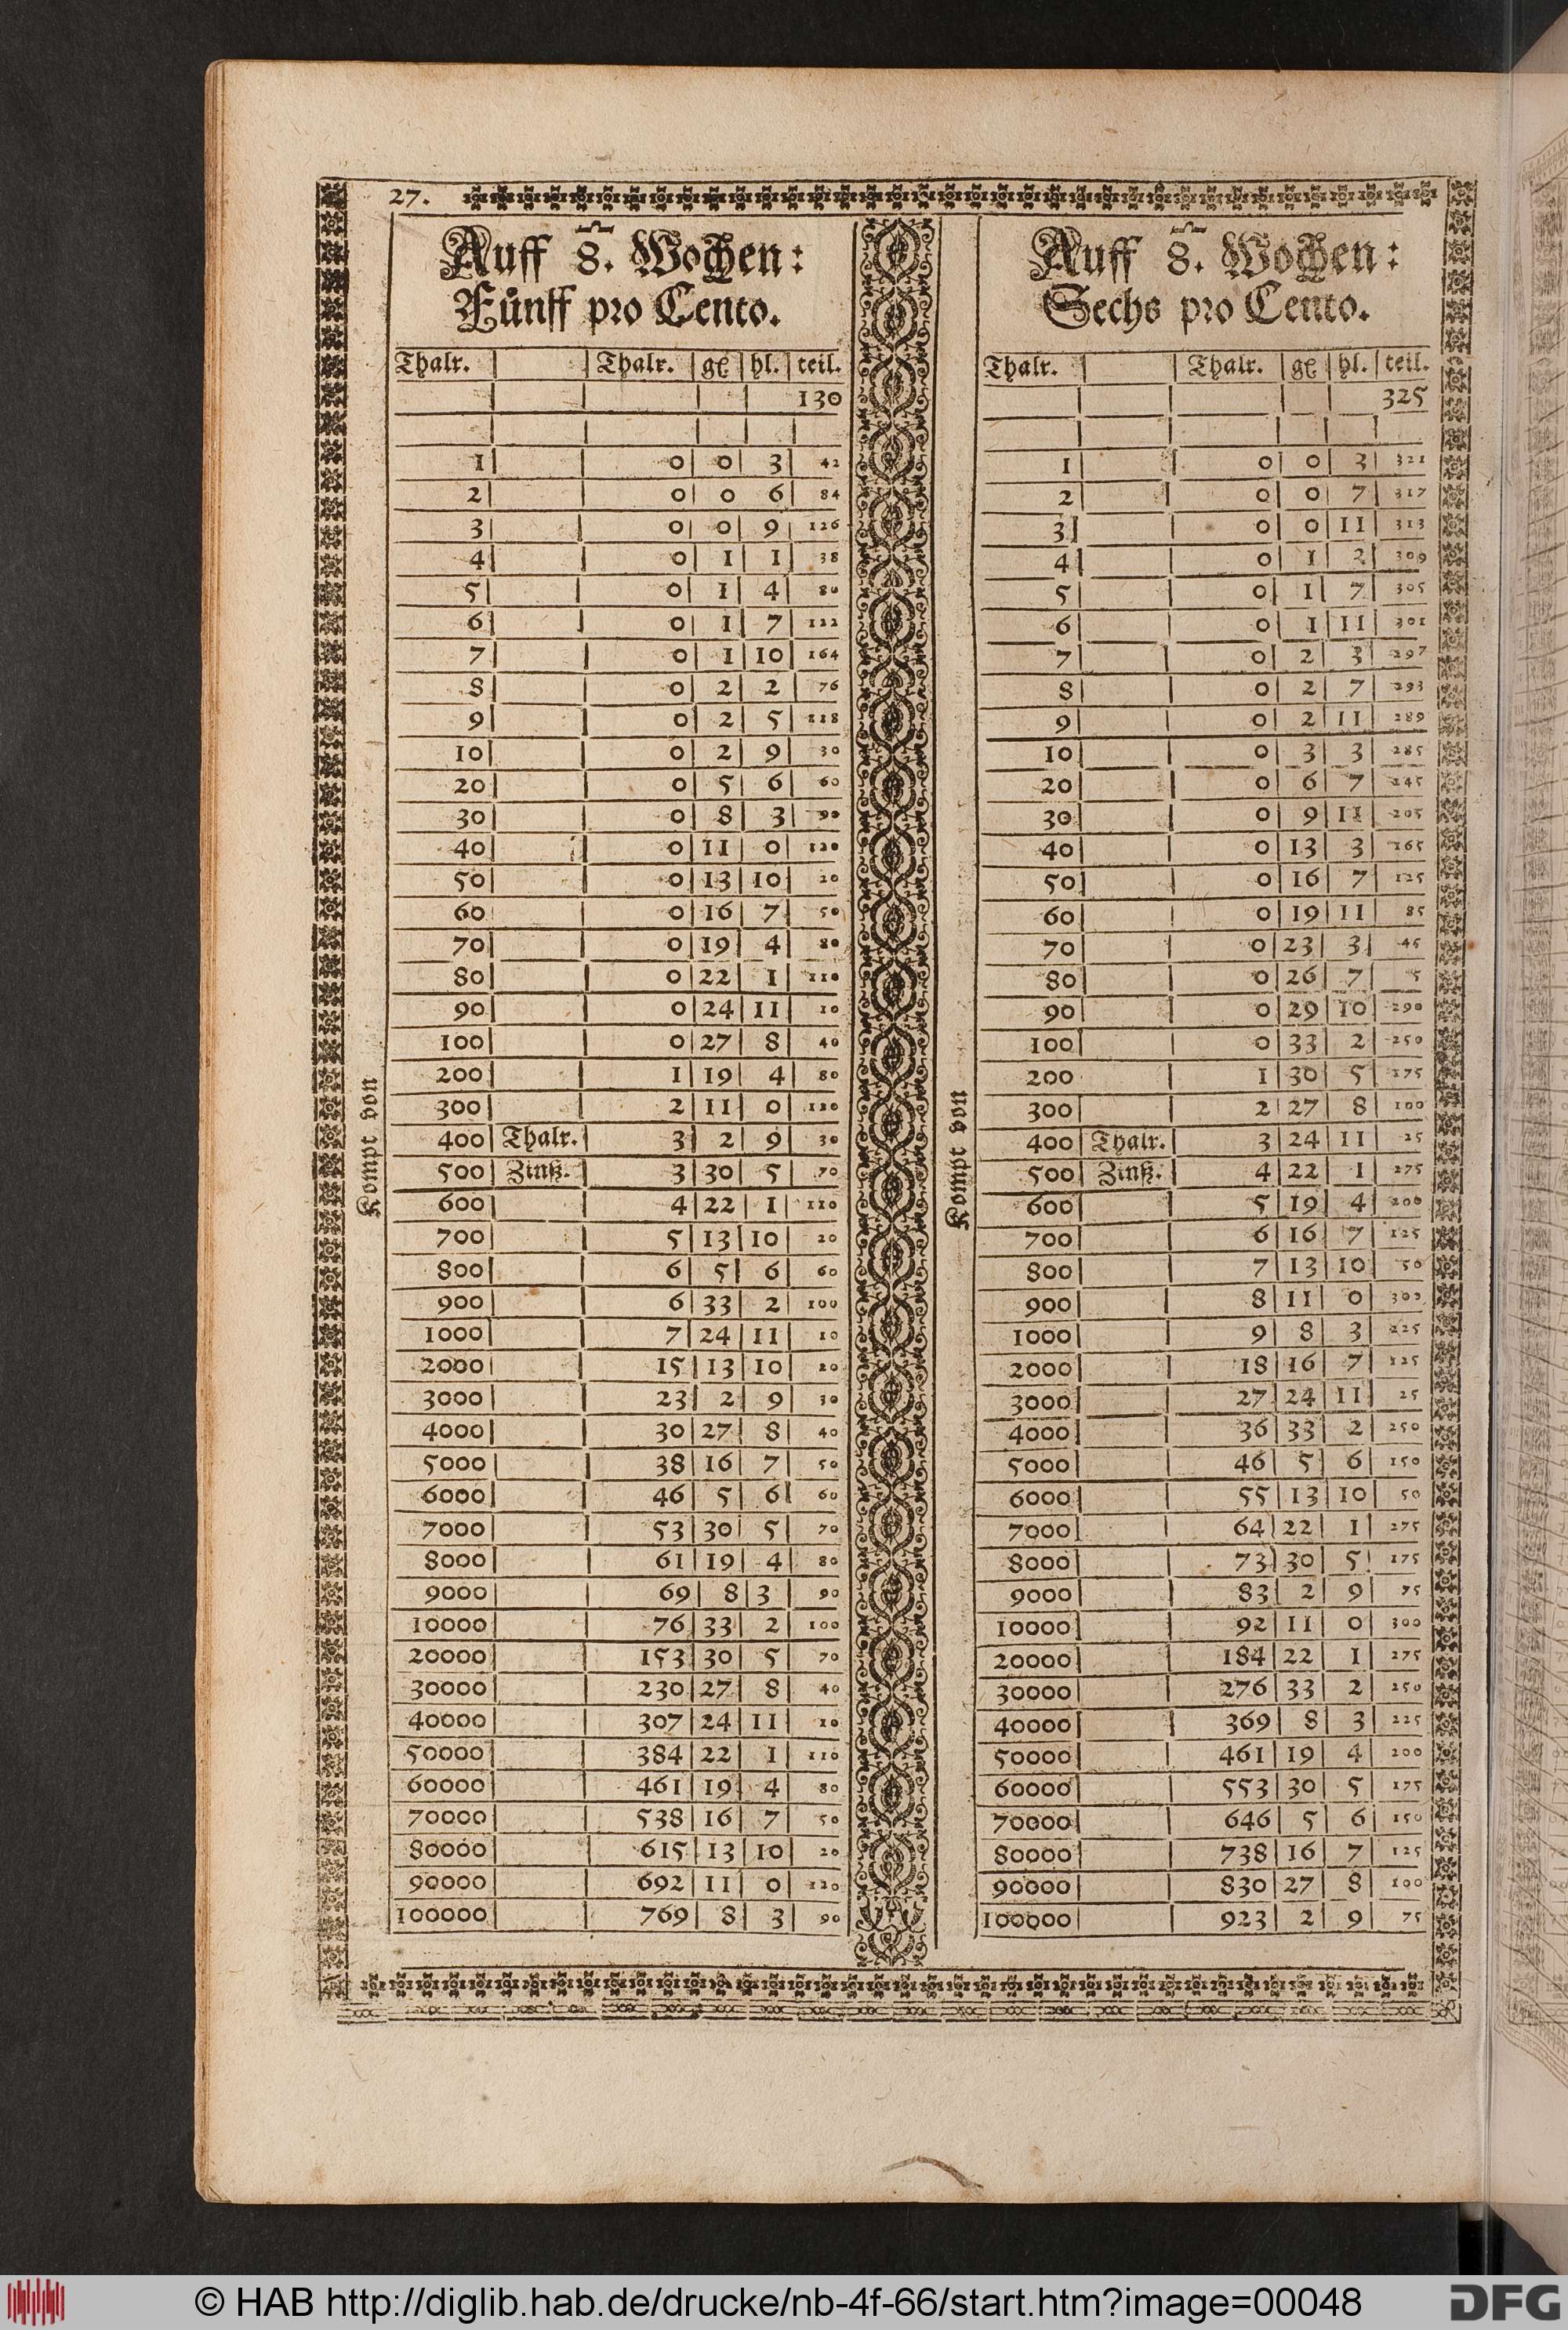 27.
Auff 8. Wochen:
Fůnff pro Cento.
Thalr. Thalr. gl hl. teil.
130
1 0 0 3 42
2 0 0 6 84
3 0 0 9 126
4 0 1 1 38
5 0 1 4 80
6 0 1 7 122
7 0 1 10 164
8 0 2 2 76
9 0 2 5 118
10 0 2 9 30
20 0 5 6 60
30 0 8 3 90
40 0 11 0 120
50 0 13 10 20
60 0 16 7 50
70 0 19 4 80
80 0 22 1 110
90 0 24 11 10
100 0 27 8 40
200 1 19 4 80
300 2 11 0 120
400 Thalr. 3 2 9 30
500 Zinß. 3 30 5 70
600 4 22 1 110
700 5 13 10 20
800 6 5 6 60
900 6 33 2 100
1000 7 24 11 10
2000 15 13 10 20
3000 23 2 9 30
4000 30 27 8 40
5000 38 16 7 50
6000 46 5 6 60
7000 53 30 5 70
8000 61 19 4 80
9000 69 8 3 90
10000 76 33 2 100
20000 153 30 5 70
30000 230 27 8 40
40000 307 24 11 10
50000 384 22 1 110
60000 461 19 4 80
70000 538 16 7 50
80000 615 13 10 20
90000 692 11 0 120
100000 769 8 3 90
Kompt von
Auff 8. Wochen:
Sechs pro Cento.
Thalr. Thalr. gl hl. teil.
325
1 0 0 3 321
2 0 0 7 317
3 0 0 11 313
4 0 1 2 309
5 0 1 7 305
6 0 1 11 301
7 0 2 3 297
8 0 2 7 293
9 0 2 11 289
10 0 3 3 285
20 0 6 7 245
30 0 9 11 205
40 0 13 3 165
50 0 16 7 125
60 0 19 11 85
70 0 23 3 45
80 0 26 7 5
90 0 29 10 290
100 0 33 2 250
200 1 30 5 175
300 2 27 8 100
400 Thalr. 3 24 11 25
500 Zinß. 4 22 1 275
600 5 19 4 200
700 6 16 7 125
800 7 13 10 50
900 8 11 0
1000 9 8 3 225
2000 18 16 7 125
3000 27 24 11 25
4000 36 33 2 250
5000 46 5 6 150
6000 55 13 10 50
7000 64 22 1 275
8000 73 30 5 175
9000 83 2 9 75
10000 92 11 0 300
20000 184 22 1 275
30000 276 33 2 250
40000 369 8 3 225
50000 461 19 4 200
60000 553 30 5 175
70000 646 5 6 150
80000 738 16 7 125
90000 830 27 8 100
100000 923 2 9 75
Kompt von
© HAB http://diglib.hab.de/drucke/nb-4f-66/start.htm?image=00048
DFG